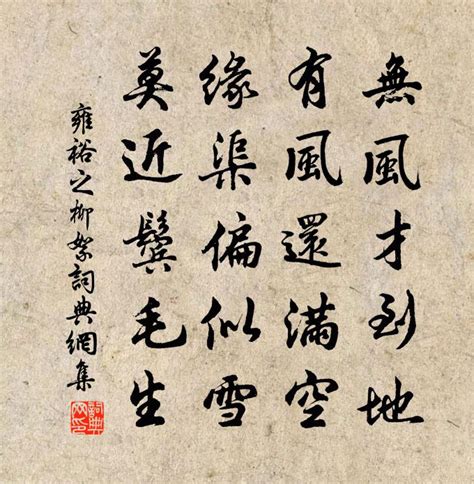 無風才到地
有風還滿空
緣渠偏似雪
莫近鬢毛生
雍裕之柳絮詞典網集